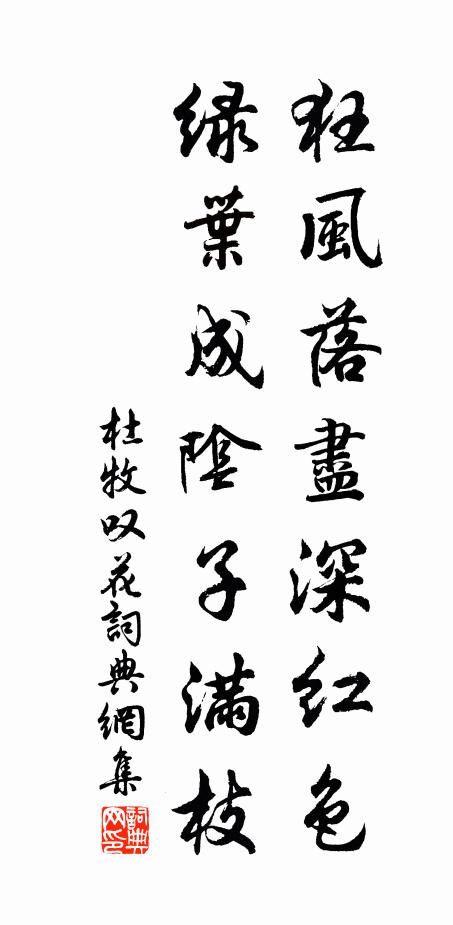 狂風落盡深紅色
绿葉成陰子滿枝
杜牧叹花詞典網集
詞典网印